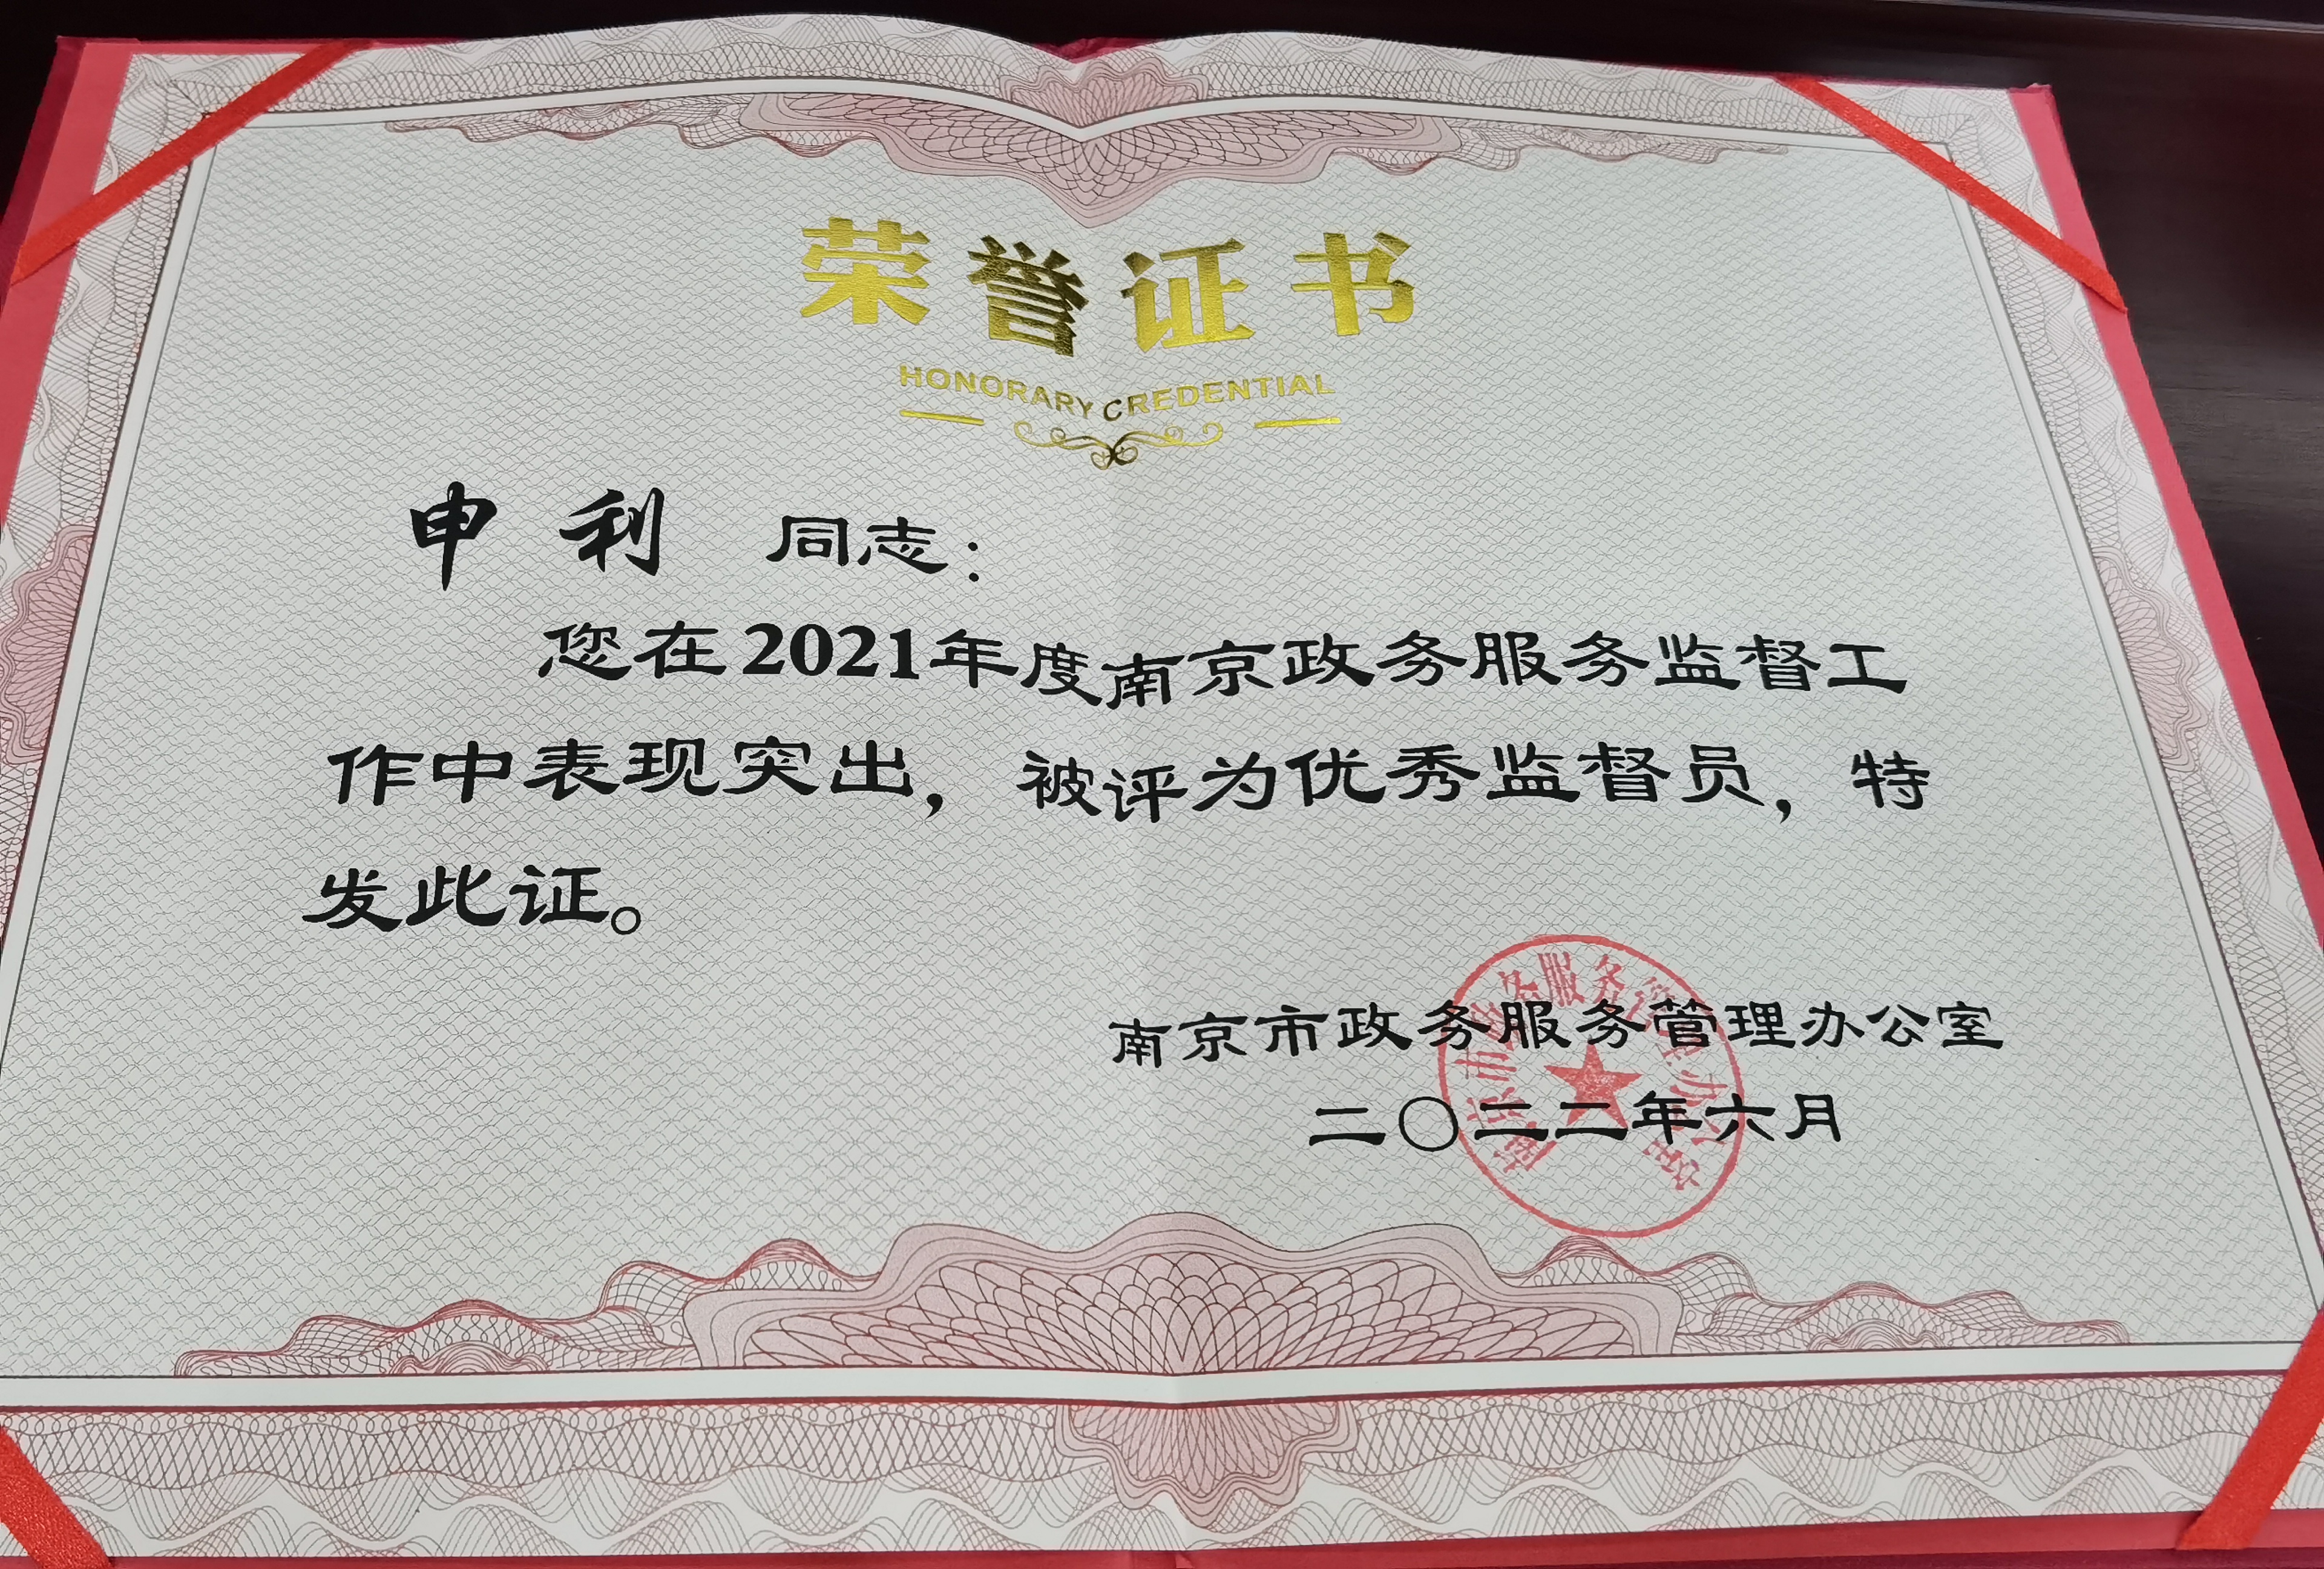 荣誉证书
HONORARY CREDENTIAL
申 利 同志：
您在2021年度南京政务服务监督工
作中表现突出，被评为优秀监督员，特
发此证。
南京市政务服务管理办公室
二〇二二年六月
南京市政务服务管理办公室